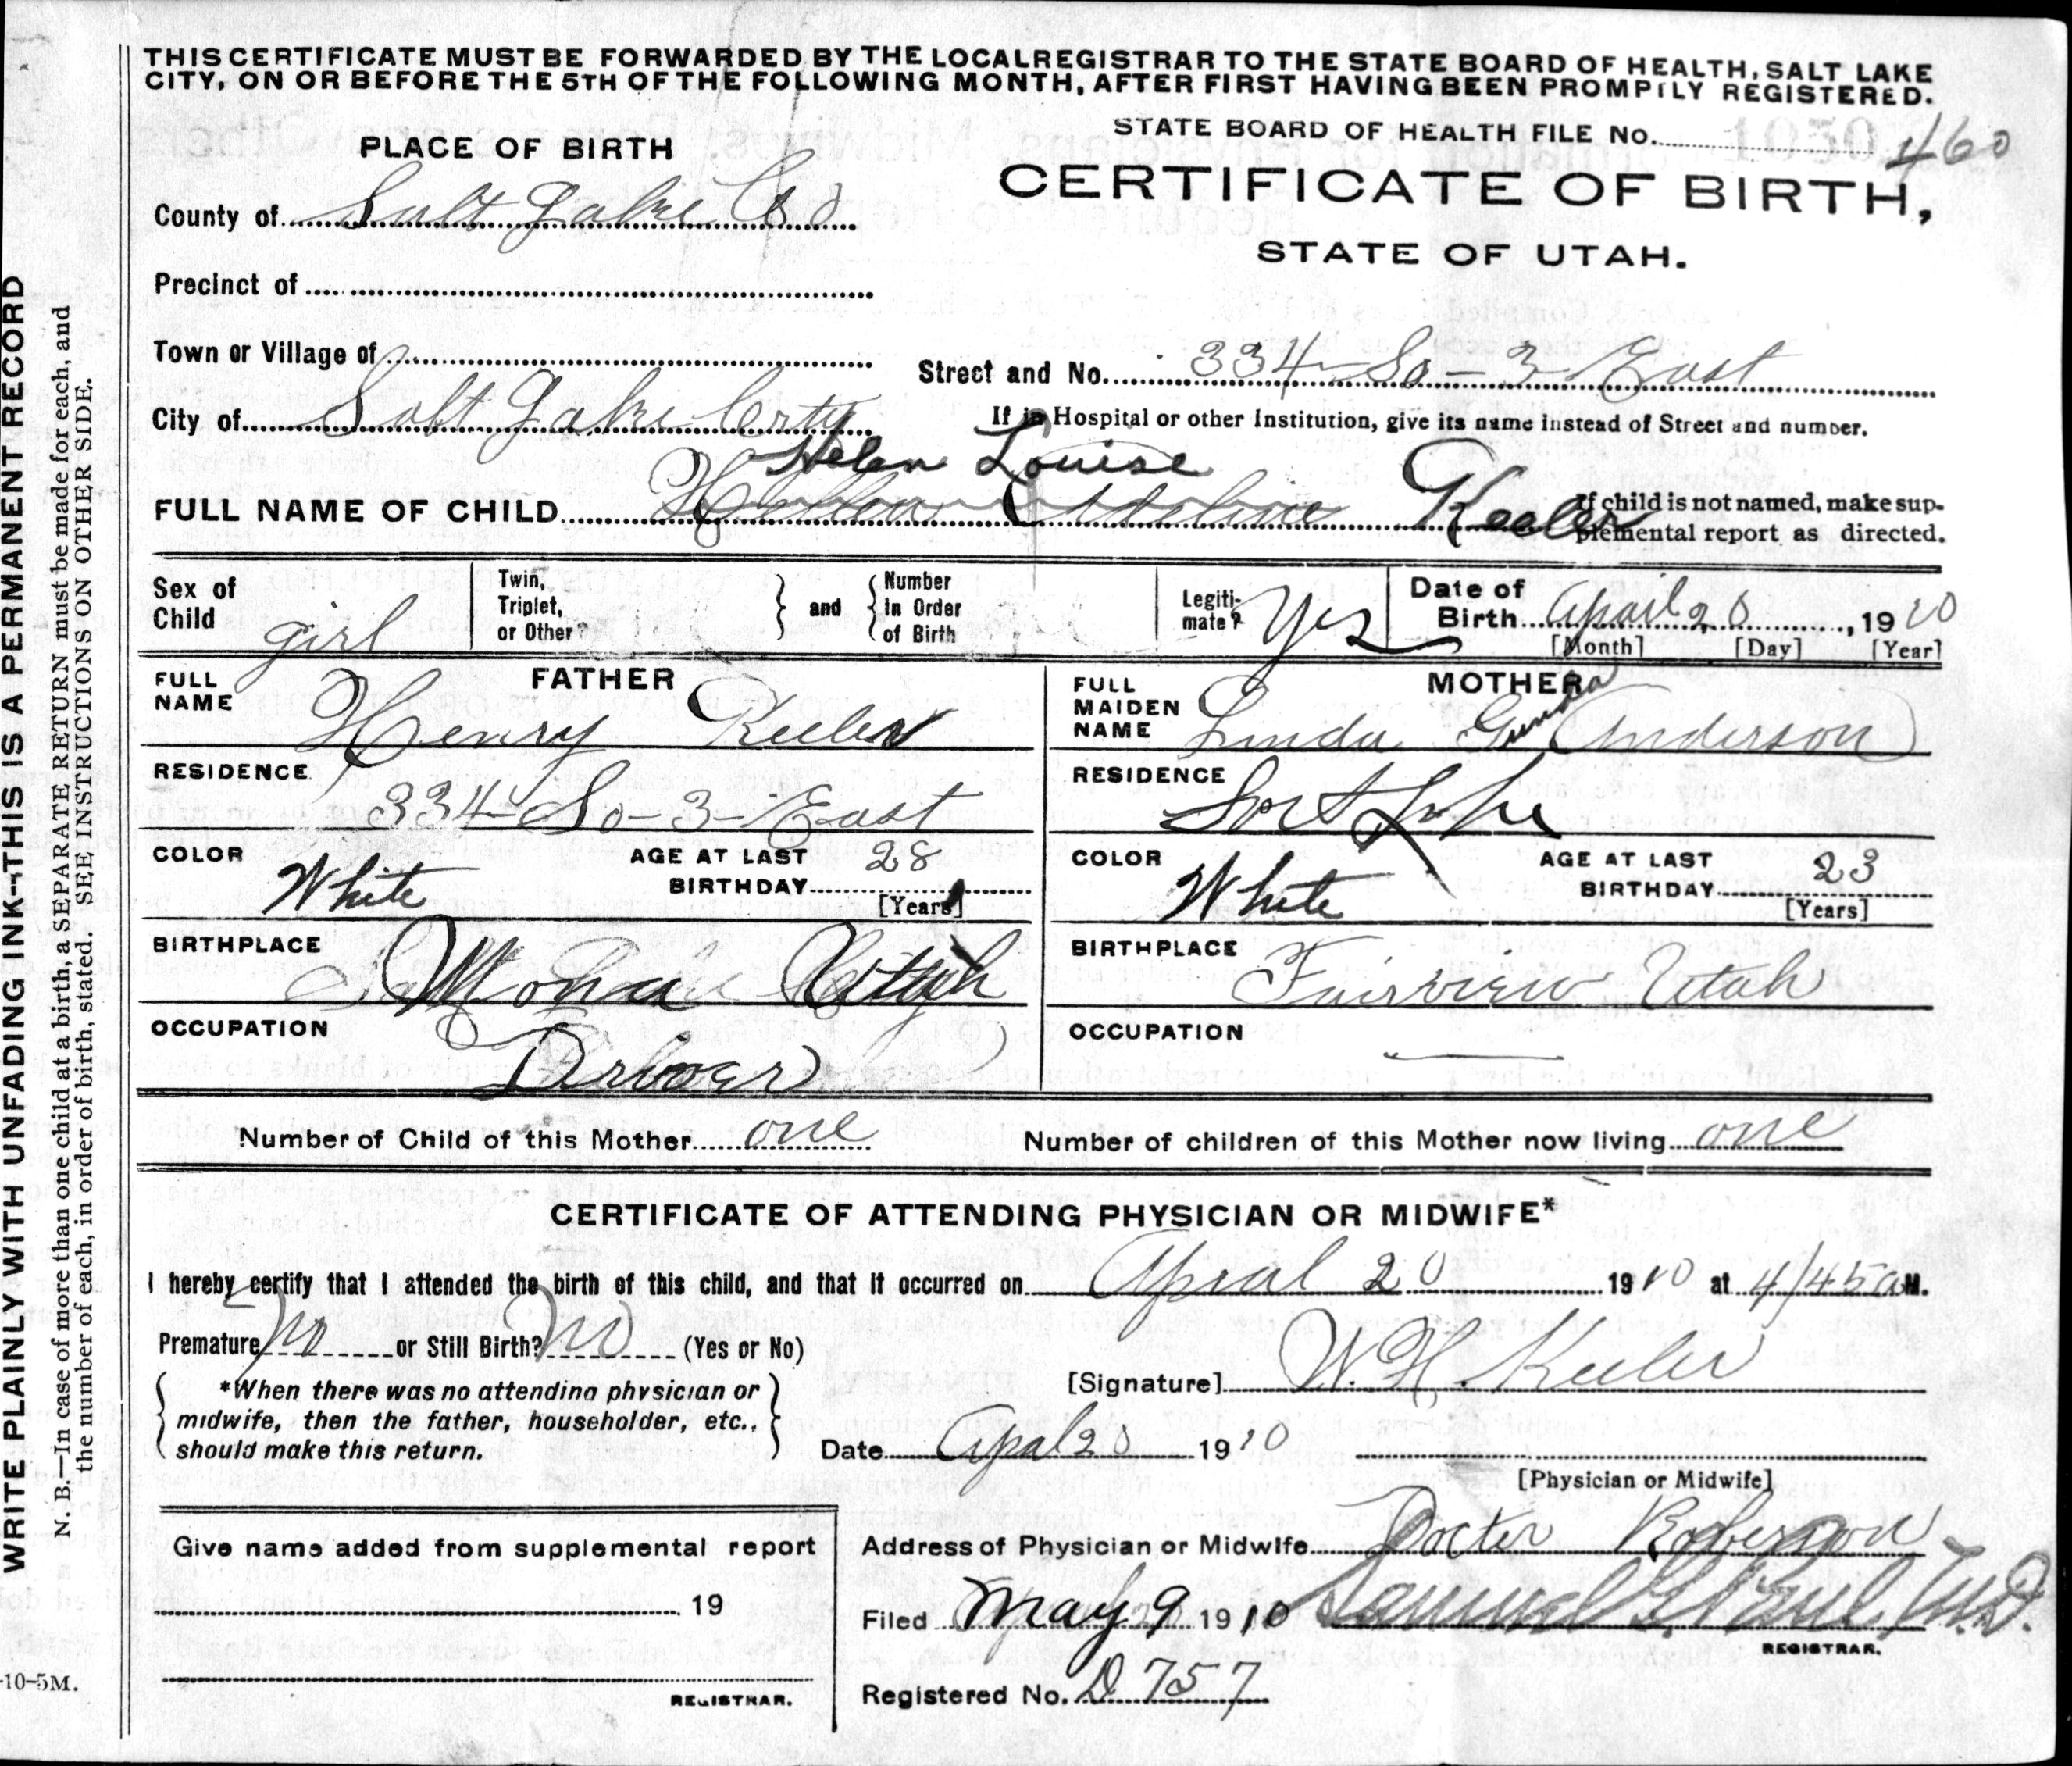 THIS CERTIFICATE MUST BE FORWARDED BY THE LOCAL REGISTRAR TO THE STATE BOARD OF HEALTH, SALT LAKE
CITY, ON OR BEFORE THE 5TH OF THE FOLLOWING MONTH, AFTER FIRST HAVING BEEN PROMPTLY REGISTERED.
STATE BOARD OF HEALTH FILE No. 460
PLACE OF BIRTH
CERTIFICATE OF BIRTH,
STATE OF UTAH.
County of Salt Lake Co
Precinct of
Town or Village of
Street and No. 334-So-3-East
City of Salt Lake City
If in Hospital or other Institution, give its name instead of Street and number.
Helen Louise
FULL NAME OF CHILD Keeler
If child is not named, make sup-
plemental report as directed.
Sex of Child girl
Twin, Triplet, or Other? and Number In Order of Birth
Legiti-mate? Yes
Date of Birth April 20, 1910
[Month] [Day] [Year]
FATHER
FULL NAME Henry Keeler
RESIDENCE 334-So-3-East
COLOR White
AGE AT LAST BIRTHDAY 28
[Years]
BIRTHPLACE Mona Utah
OCCUPATION Driver
MOTHER
FULL MAIDEN NAME Linda Gunda Anderson
RESIDENCE Salt Lake
COLOR White
AGE AT LAST BIRTHDAY 23
[Years]
BIRTHPLACE Fairview Utah
OCCUPATION
Number of Child of this Mother one
Number of children of this Mother now living one
CERTIFICATE OF ATTENDING PHYSICIAN OR MIDWIFE*
I hereby certify that I attended the birth of this child, and that it occurred on Apral 20 1910 at 4/45 a M.
Premature no or Still Birth? no (Yes or No)
*When there was no attending physician or
midwife, then the father, householder, etc.,
should make this return.
[Signature] W.H. Keeler
Date Apral 20 1910
[Physician or Midwife]
Give name added from supplemental report
19
REGISTRAR.
Address of Physician or Midwife Docter Roberson
Filed May 9 1910 Samuel G. Paul, M.D.
REGISTRAR.
Registered No. D 757
WRITE PLAINLY WITH UNFADING INK--THIS IS A PERMANENT RECORD
N. B.—In case of more than one child at a birth, a SEPARATE RETURN must be made for each, and
the number of each, in order of birth, stated. SEE INSTRUCTIONS ON OTHER SIDE.
-10-5M.